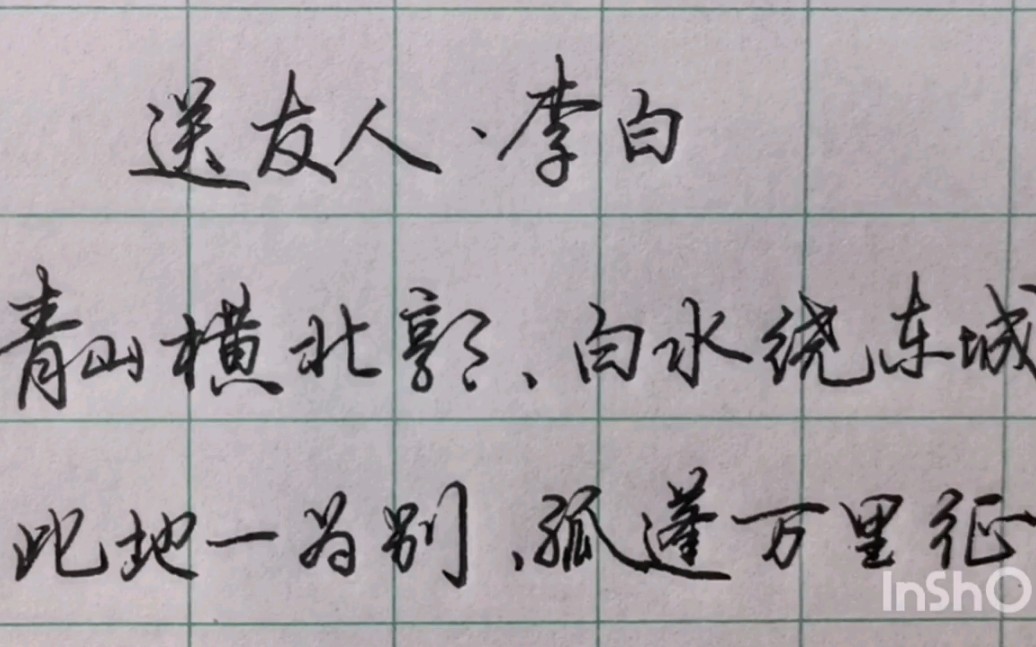 送友人·李白
青山横北郭、白水绕东城
此地一为别、孤蓬万里征
InShO